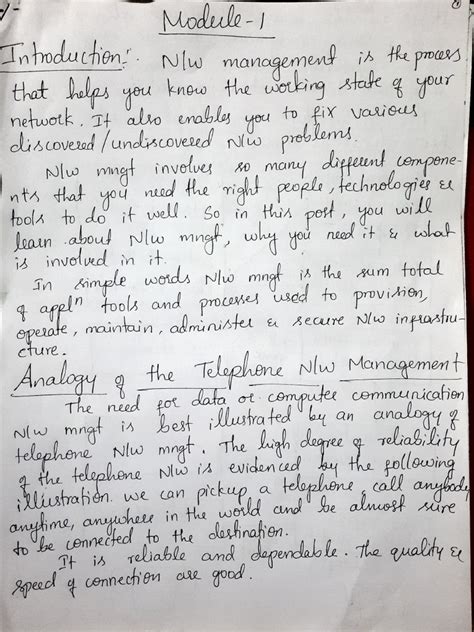 Module-1
Introduction:- N/w management is the process
that helps you know the working state of your
network. It also enables you to fix various
discovered/undiscovered N/w problems.
N/w mngt involves so many different compone-
nts that you need the right people, technologies &
tools to do it well. So in this post, you will
learn about N/w mngt, why you need it & what
is involved in it.
In simple words N/w mngt is the sum total
of appln tools and processes used to provision,
operate, maintain, administer & secure N/w infrastru-
cture.
Analogy of the Telephone N/w Management
The need for data or computer communication
N/w mngt is best illustrated by an analogy of
telephone N/w mngt. The high degree of reliability
of the telephone N/w is evidenced by the following
illustration. we can pickup a telephone, call anybody
anytime, anywhere in the world and be almost sure
to be connected to the destination.
It is reliable and dependable. The quality &
speed of connection are good.